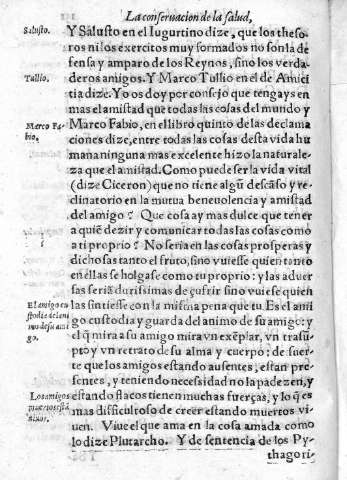 La conseruacion de la salud,
Salusto.
Y Salusto en el Iugurtino dize, que los theso
ros ni los exercitos muy formados no son la de
fensa y amparo de los Reynos, sino los verda
Tullio.
deros amigos. Y Marco Tullio en el de Amici
tia dize. Yo os doy por consejo que tengays en
mas el amistad que todas las cosas del mundo y
Marco Fa-
bio,
Marco Fabio, en el libro quinto de las declama
ciones dize, entre todas las cosas desta vida hu
mana ninguna mas excelente hizo la naturale-
za que el amistad. Como puede ser la vida vital
(dize Ciceron) que no tiene algũ descãso y re-
clinatorio en la mutua beneuolencia y amistad
del amigo? Que cosa ay mas dulce que tener
a quiẽ dezir y comunicar to das las cosas como
a ti proprio? No seria en las cosas prosperas y
dichosas tanto el fruto, sino vuiesse quien tanto
en ellas se holgase como tu proprio: y las aduer
sas seriã durissimas de çufrir sino vuiese quien
las sintiesse con la misma pena que tu Es el ami
El amigo cu
stodia del ani
mo de su ami
go.
go custodia y guarda del animo de su amigo: y
el q̃ mira a su amigo mira vn exẽplar, vn trasũ
pto y vn retrato de su alma y cuerpo: de suer-
te que los amigos estando ausentes, estan pre-
sentes, y teniendo necessidad no la padezen, y
Los amigos
muertos estã
viuos.
estando flacos tienen muchas fuerças, y lo q̃ es
mas difficultoso de creer estando muertos vi-
uen. Viue el que ama en la cosa amada como
lo dize Plutarcho. Y de sentencia de los Py-
thagori-